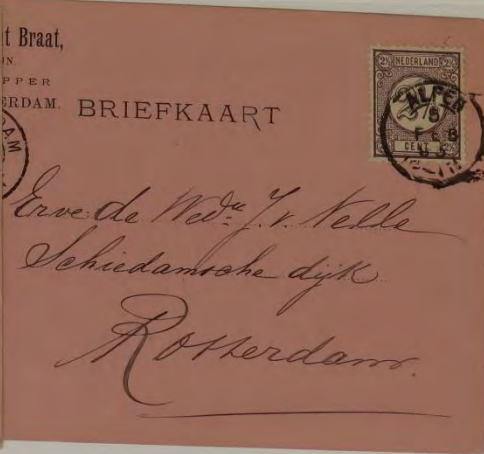 t Braat,
PPER
ERDAM.
BRIEFKAART
2½ NEDERLAND 2½
CENT
ALPEN
FEB
DAM
Erve de Wedᵘᵉ J. v. Nelle
Schiedamsche dijk
Rotterdam.